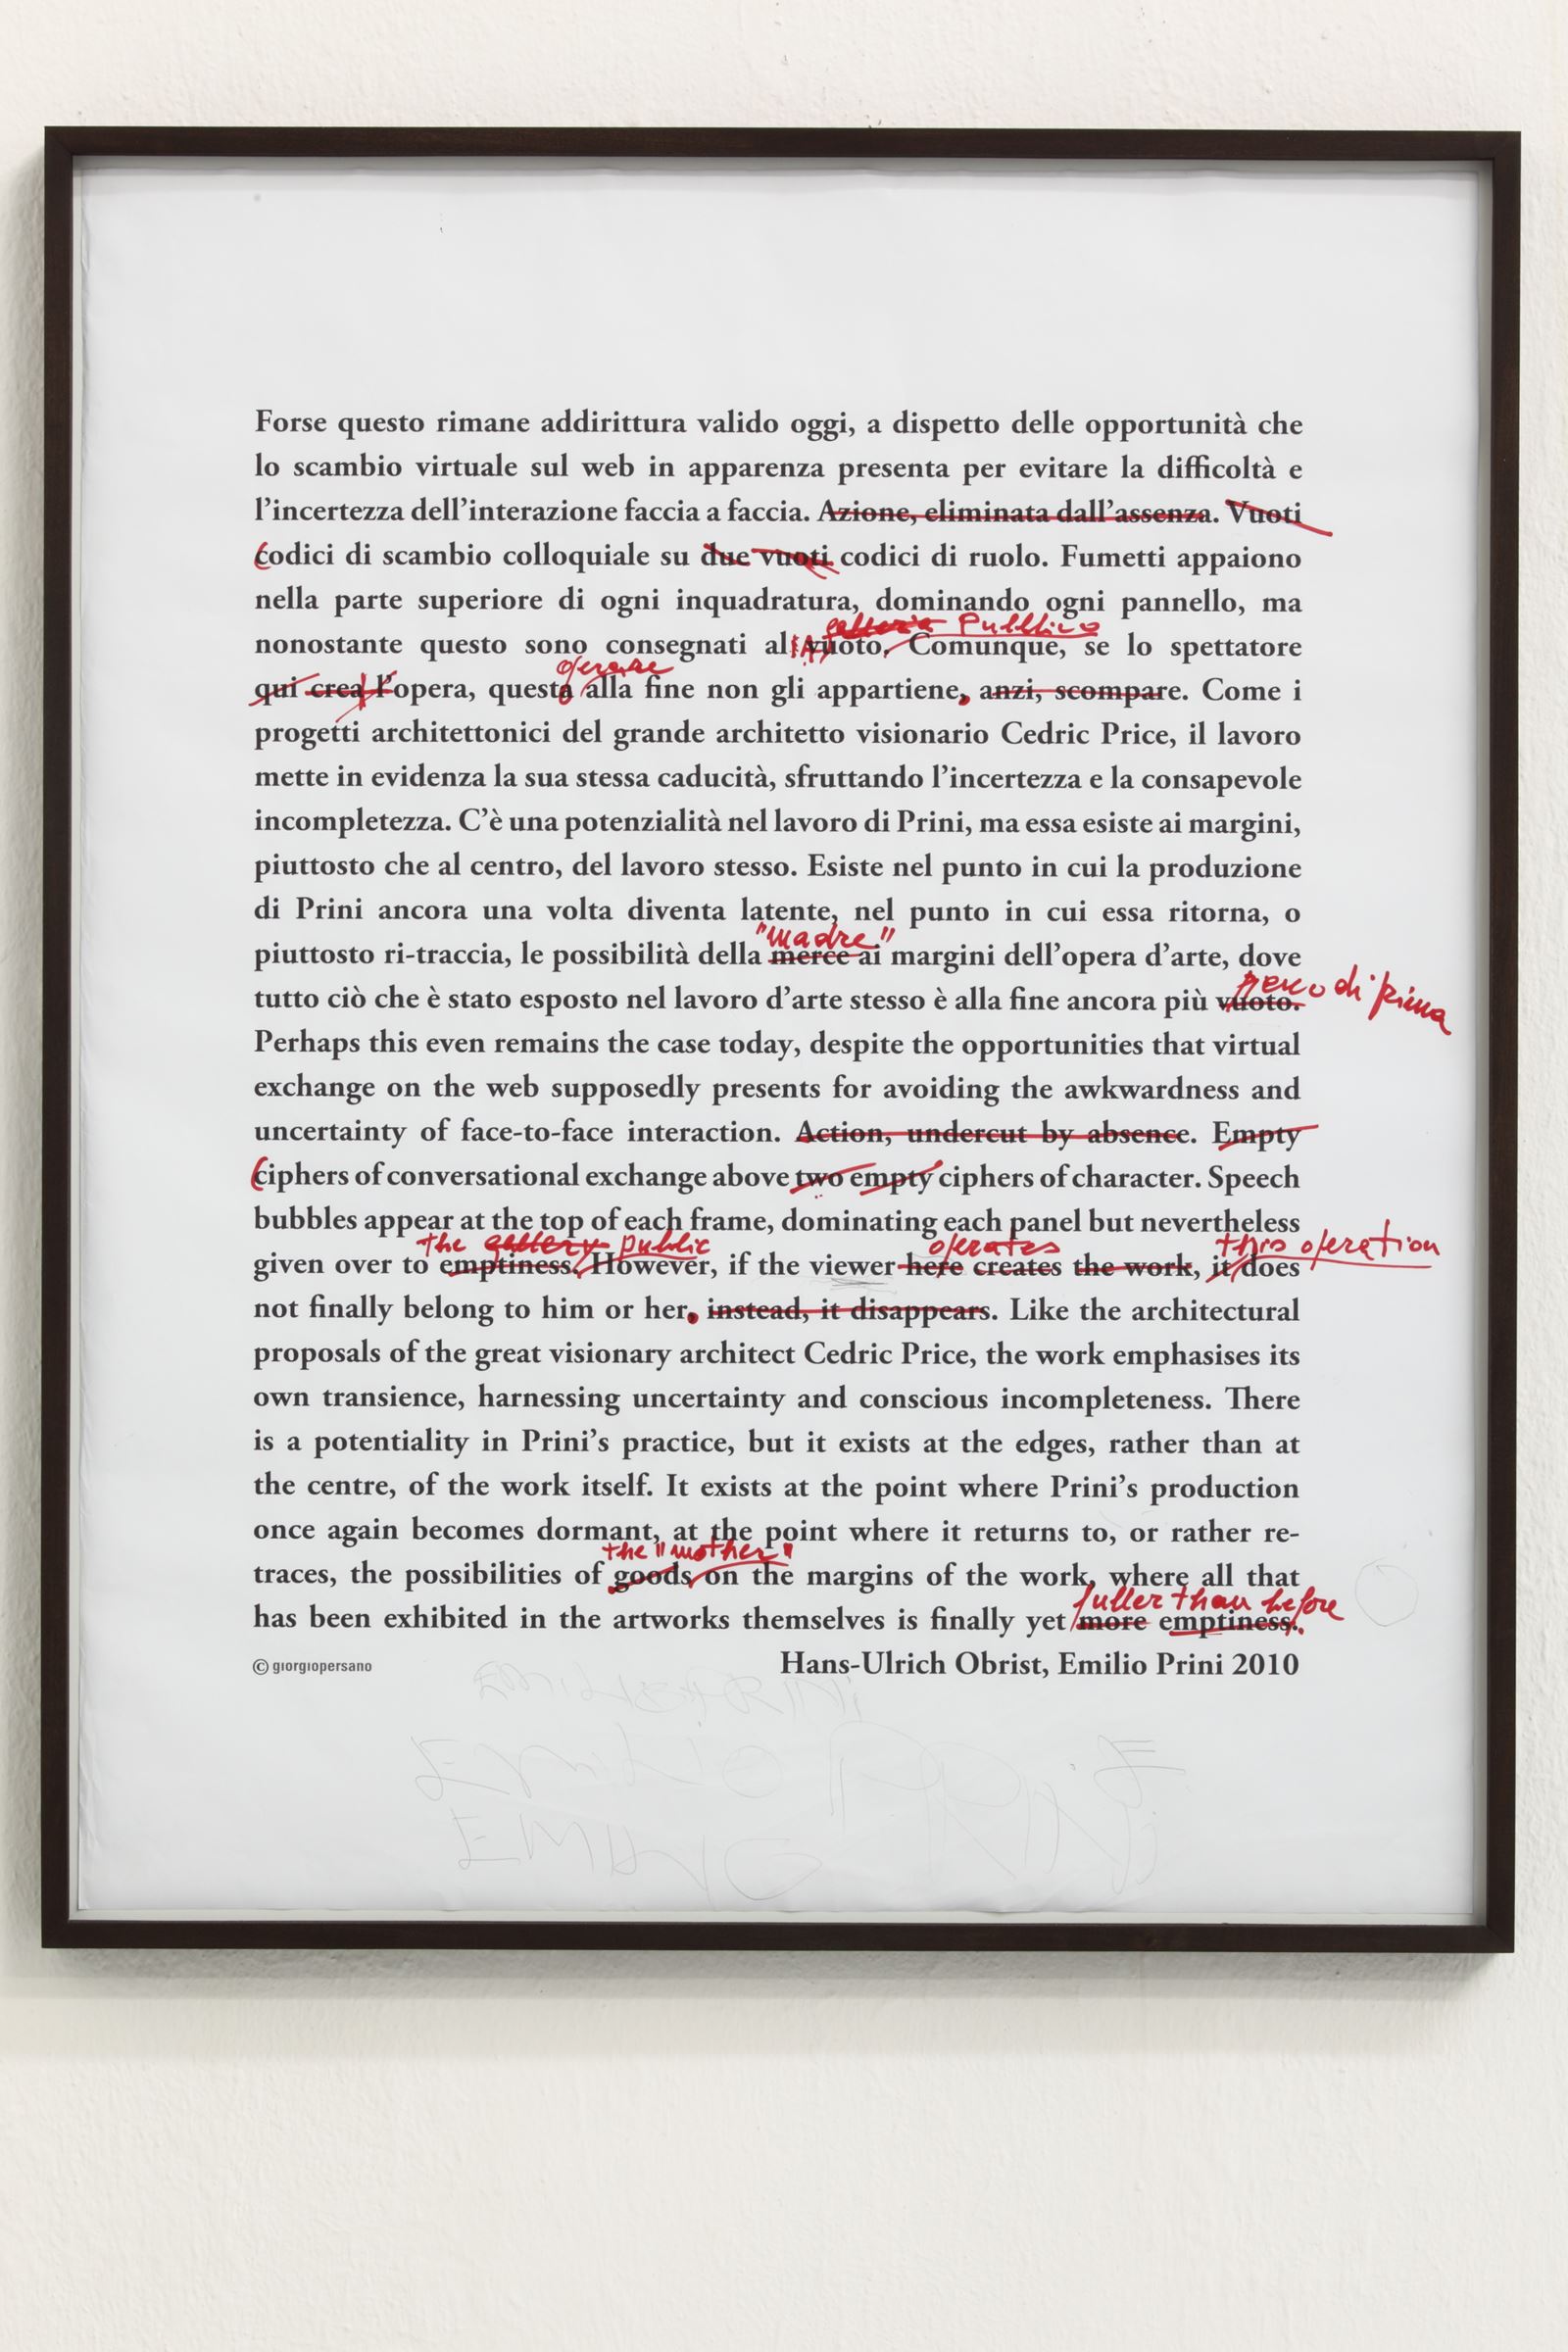 Forse questo rimane addirittura valido oggi, a dispetto delle opportunità che
lo scambio virtuale sul web in apparenza presenta per evitare la difficoltà e
l’incertezza dell’interazione faccia a faccia. Azione, eliminata dall’assenza. Vuoti
codici di scambio colloquiale su due vuoti codici di ruolo. Fumetti appaiono
nella parte superiore di ogni inquadratura, dominando ogni pannello, ma
galleria Pubblico
nonostante questo sono consegnati al vuoto. Comunque, se lo spettatore
operare
qui crea l’opera, questa alla fine non gli appartiene, anzi, scompare. Come i
progetti architettonici del grande architetto visionario Cedric Price, il lavoro
mette in evidenza la sua stessa caducità, sfruttando l’incertezza e la consapevole
incompletezza. C’è una potenzialità nel lavoro di Prini, ma essa esiste ai margini,
piuttosto che al centro, del lavoro stesso. Esiste nel punto in cui la produzione
di Prini ancora una volta diventa latente, nel punto in cui essa ritorna, o
"madre"
piuttosto ri-traccia, le possibilità della merce ai margini dell’opera d’arte, dove
di prima
tutto ciò che è stato esposto nel lavoro d’arte stesso è alla fine ancora più vuoto.
Perhaps this even remains the case today, despite the opportunities that virtual
exchange on the web supposedly presents for avoiding the awkwardness and
uncertainty of face-to-face interaction. Action, undercut by absence. Empty
ciphers of conversational exchange above two empty ciphers of character. Speech
bubbles appear at the top of each frame, dominating each panel but nevertheless
the gallery public operates this operation
given over to emptiness. However, if the viewer here creates the work, it does
not finally belong to him or her, instead, it disappears. Like the architectural
proposals of the great visionary architect Cedric Price, the work emphasises its
own transience, harnessing uncertainty and conscious incompleteness. There
is a potentiality in Prini’s practice, but it exists at the edges, rather than at
the centre, of the work itself. It exists at the point where Prini’s production
once again becomes dormant, at the point where it returns to, or rather re-
the "mother"
traces, the possibilities of goods on the margins of the work, where all that
fuller than before
has been exhibited in the artworks themselves is finally yet more emptiness.
Hans-Ulrich Obrist, Emilio Prini 2010
© giorgiopersano